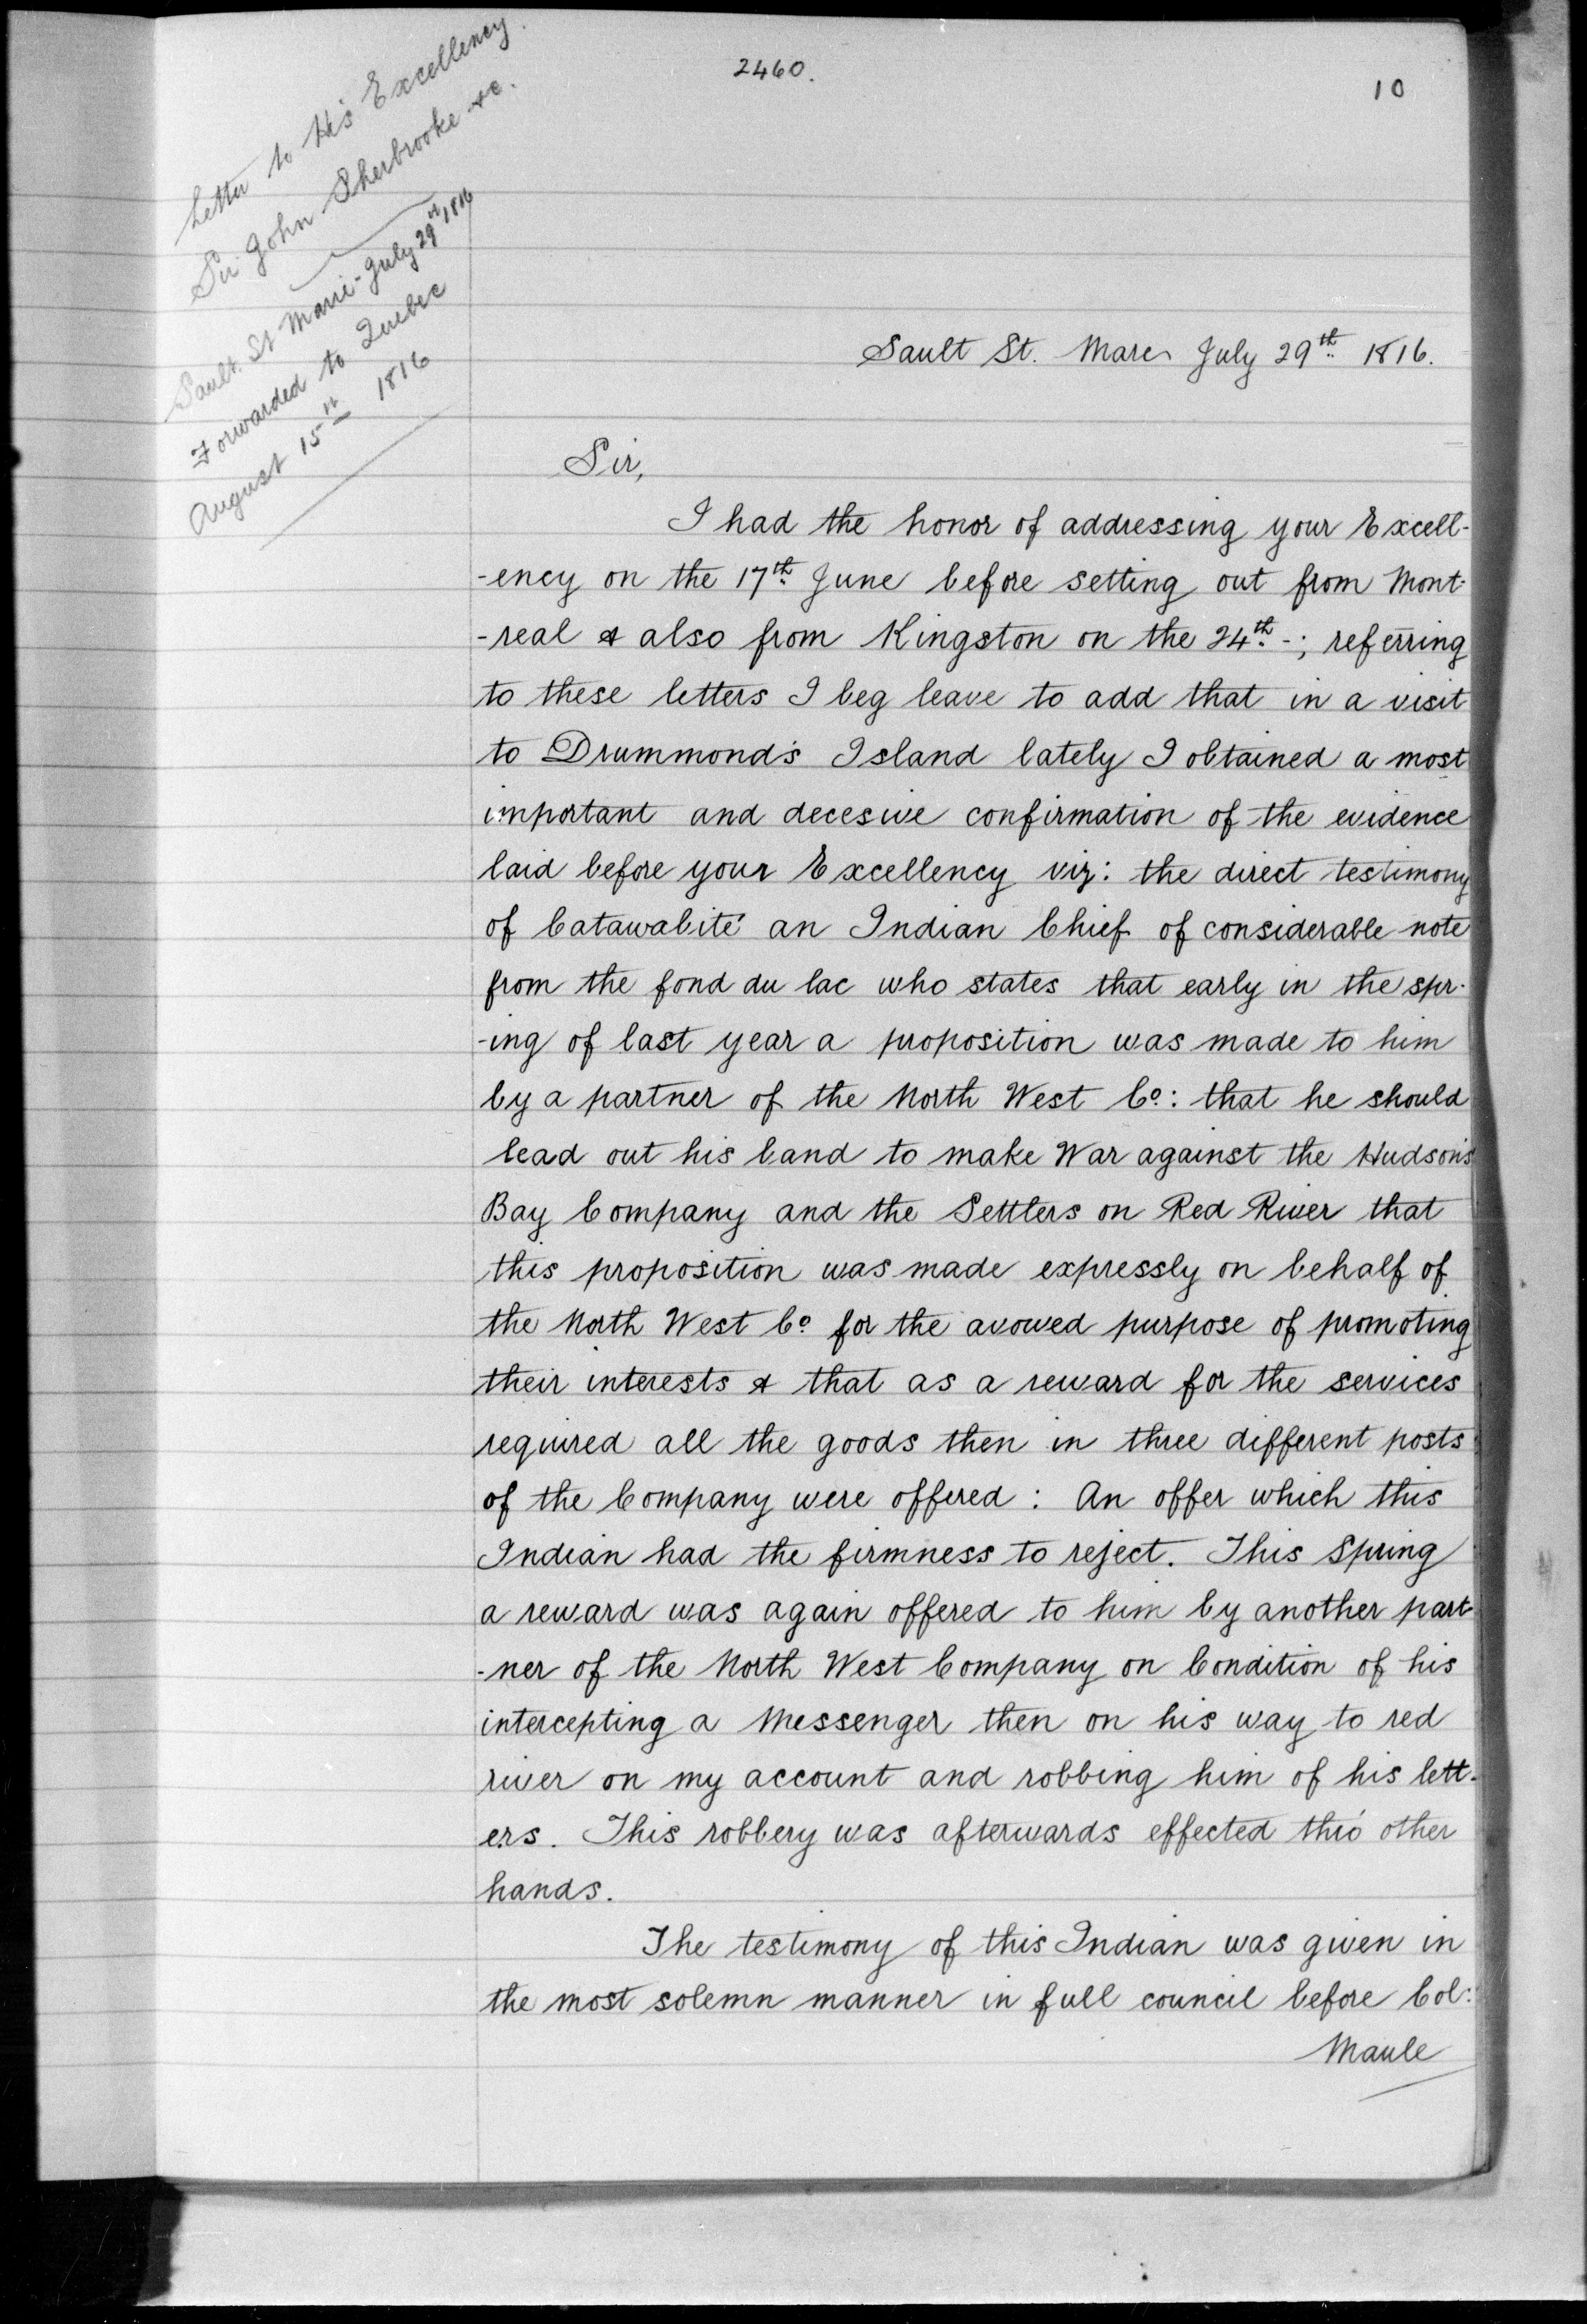 2460.
10
Letter to His Excellency.
Sir John Sherbrooke &c.
Sault. St Marie - July 29th 1816
Forwarded to Quebec
August 15th 1816
Sault St. Mare July 29th 1816.
Sir,
I had the honor of addressing your Excell-
-ency on the 17th June before setting out from Mont-
-real & also from Kingston on the 24th -; referring
to these letters I beg leave to add that in a visit
to Drummond's Island lately I obtained a most
important and decesive confirmation of the evidence
laid before your Excellency viz: the direct testimony
of Catawabité an Indian Chief of considerable note
from the fond du lac who states that early in the spr-
-ing of last year a proposition was made to him
by a partner of the North West Co: that he should
lead out his band to make War against the Hudson's
Bay Company and the Settlers on Red River that
this proposition was made expressly on behalf of
the North West Co for the avowed purpose of promoting
their interests & that as a reward for the services
required all the goods then in three different posts
of the Company were offered : An offer which this
Indian had the firmness to reject. This Spring
a reward was again offered to him by another part-
-ner of the North West Company on Condition of his
intercepting a Messenger then on his way to red
river on my account and robbing him of his lett-
ers. This robbery was afterwards effected thro' other
hands.
The testimony of this Indian was given in
the most solemn manner in full council before Col:
Maule